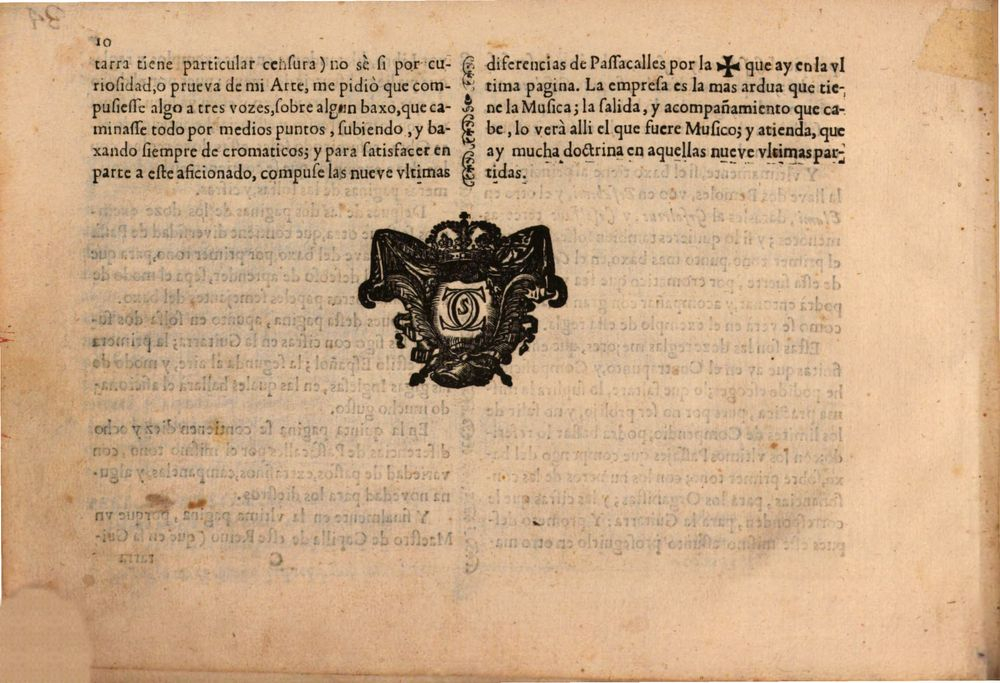 10
tarra tiene particular censura) no sè si por cu-
riosidad, o prueva de mi Arte, me pidiò que com-
pusiesse algo a tres vozes, sobre algun baxo, que ca-
minasse todo por medios puntos, subiendo, y ba-
xando siempre de cromaticos; y para satisfacer en
parte a este aficionado, compuse las nueve vltimas
diferencias de Passacalles por la ✠ que ay en la vl
tima pagina. La empresa es la mas ardua que tie-
ne la Musica; la salida, y acompañamiento que ca-
be, lo verà alli el que fuere Musico; y atienda, que
ay mucha doctrina en aquellas nueve vltimas par-
tidas.